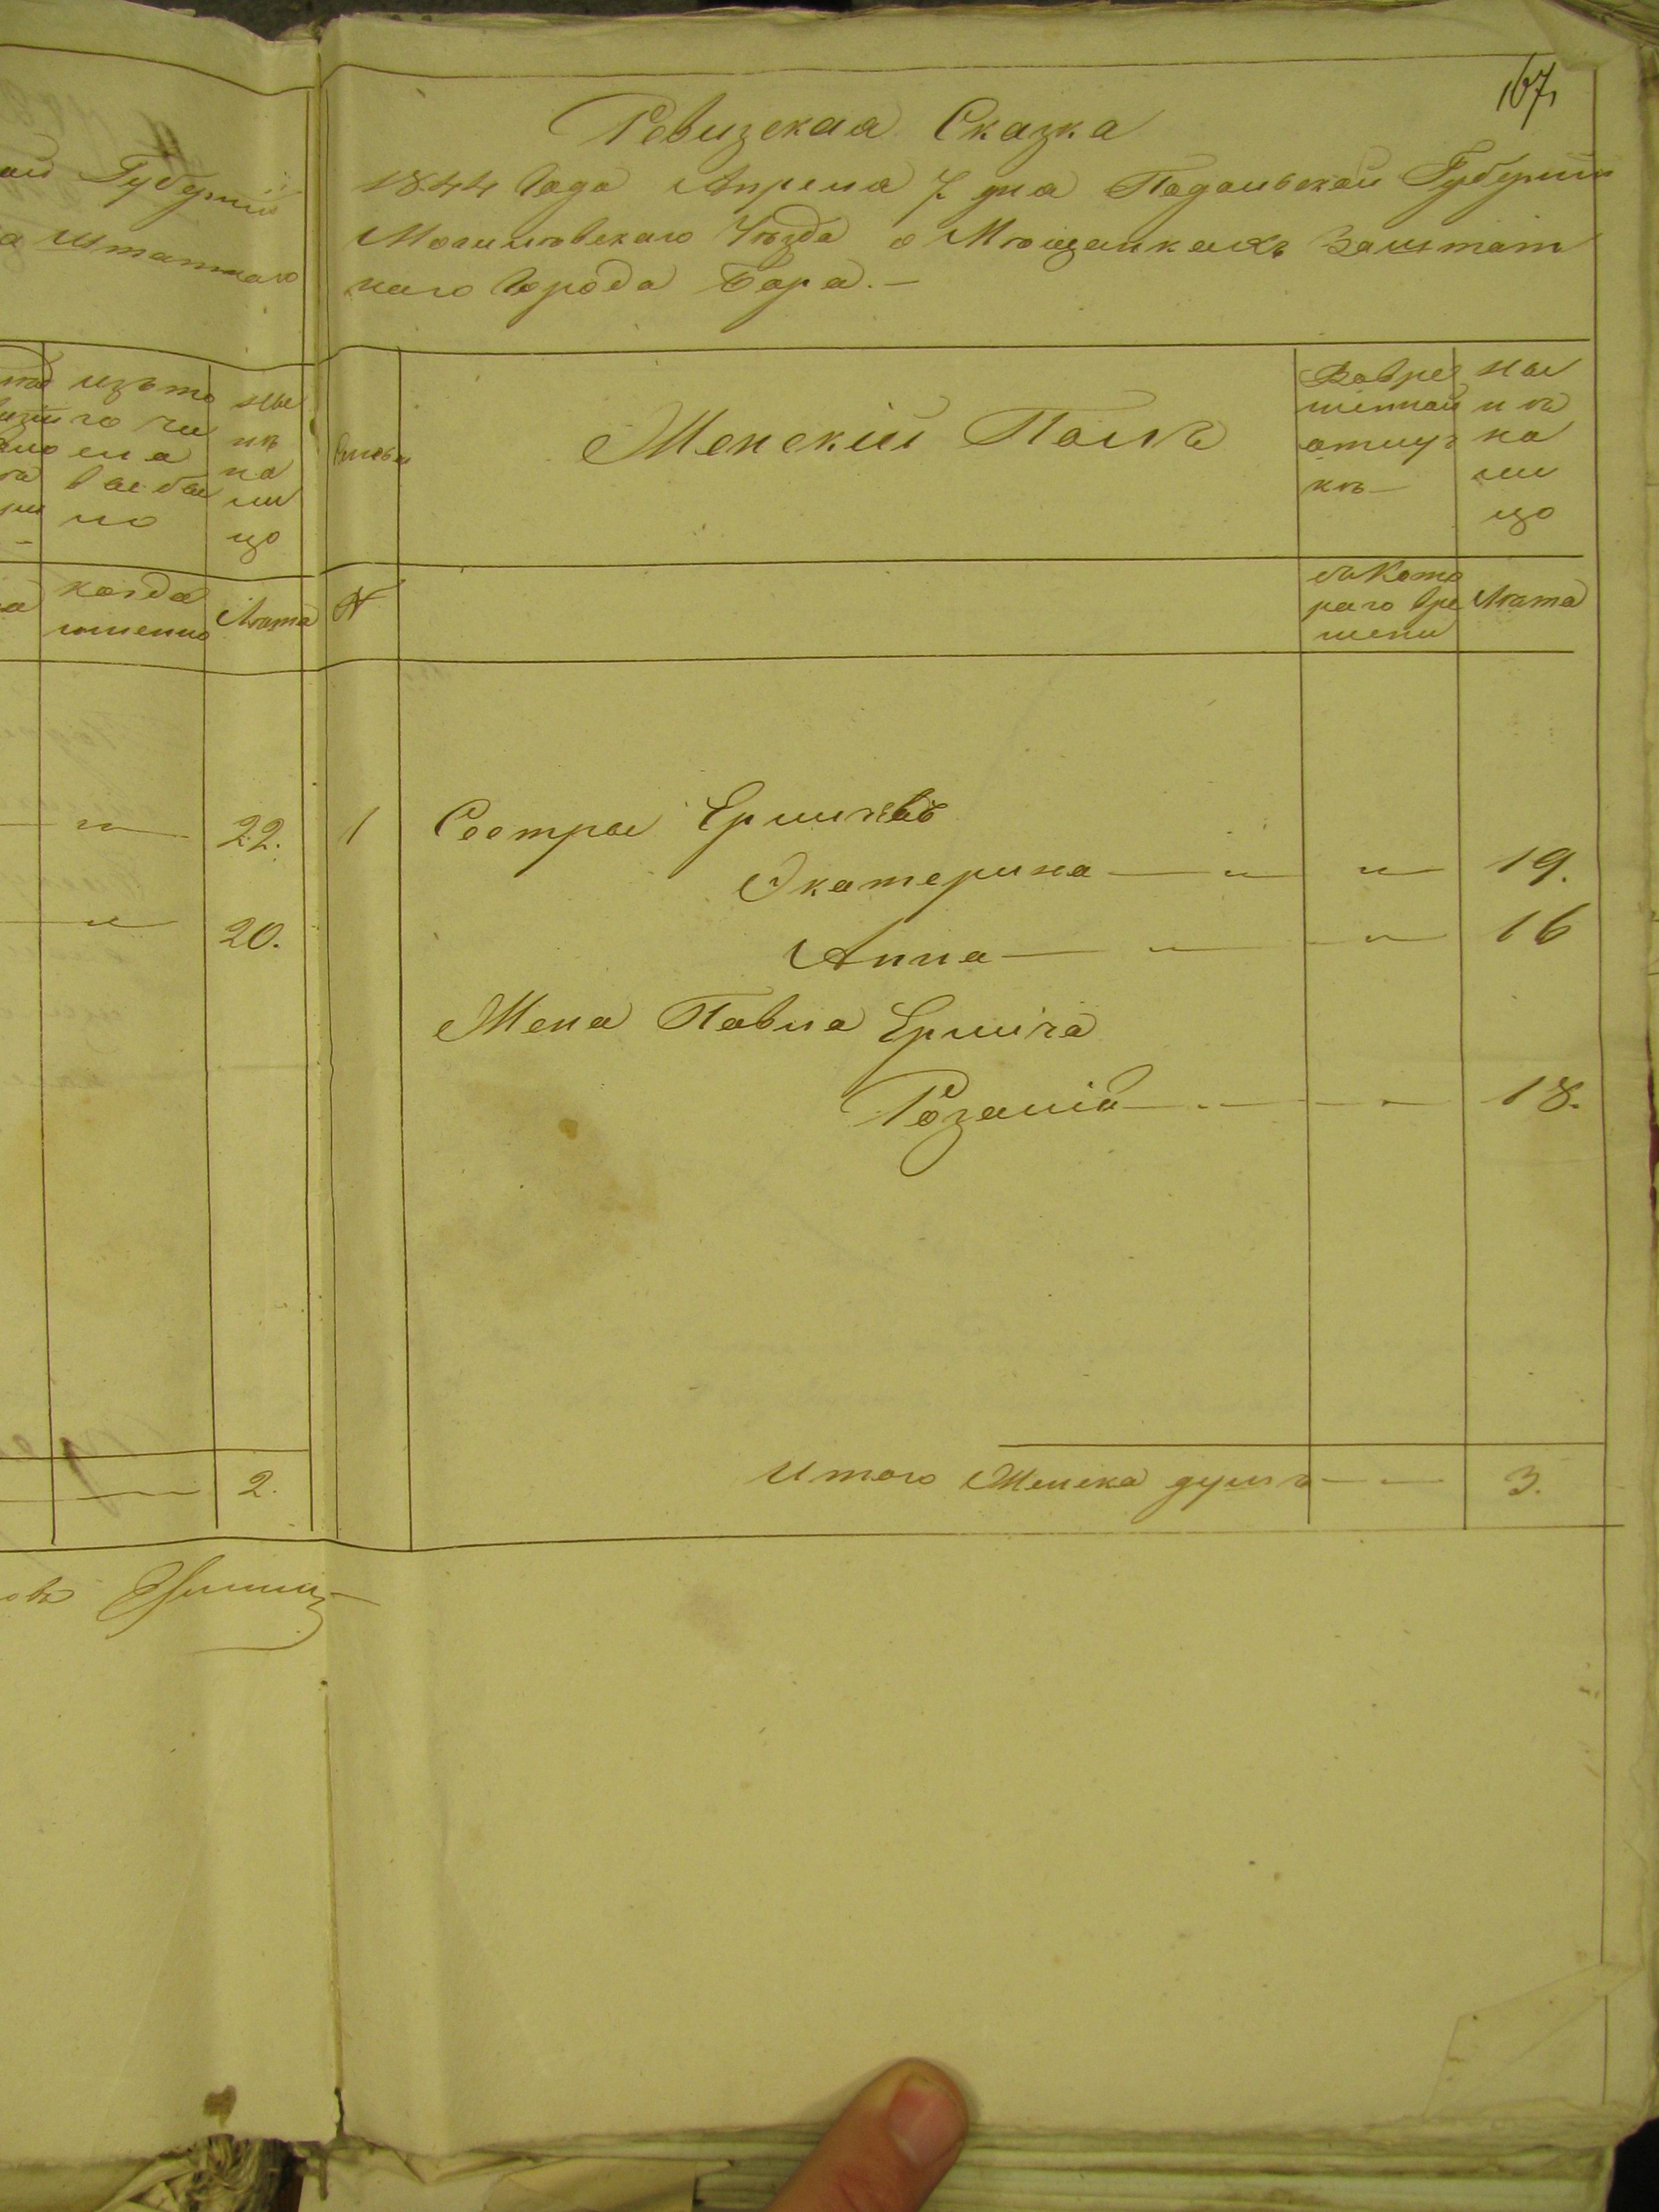 167
Ревизская Сказка
1844 Года Апреля 7 дня Подольской Губернии
Могилевскаго Уѣзда о Мѣщанкахъ Заштат
наго Города Бара.—
Губернии
Штатнаго
изъ то
го чи
сла
выбы
ло
ны
нѣ
на
ли
цо
когда
именно
Лѣта
22.
20.
2.
Женский Полъ
Вовре
менной
отлуч
кѣ—
ны
нѣ
на
ли
цо
№
съ Кото
раго вре
мени
Лѣта
1 Сестры Ермичевъ
Экатерина — „ „ — 19.
Анна — „ — „ — 16
Жена Павла Ермича
Розалія — „ — „ — 18.
Итого Женска душъ — — 3.